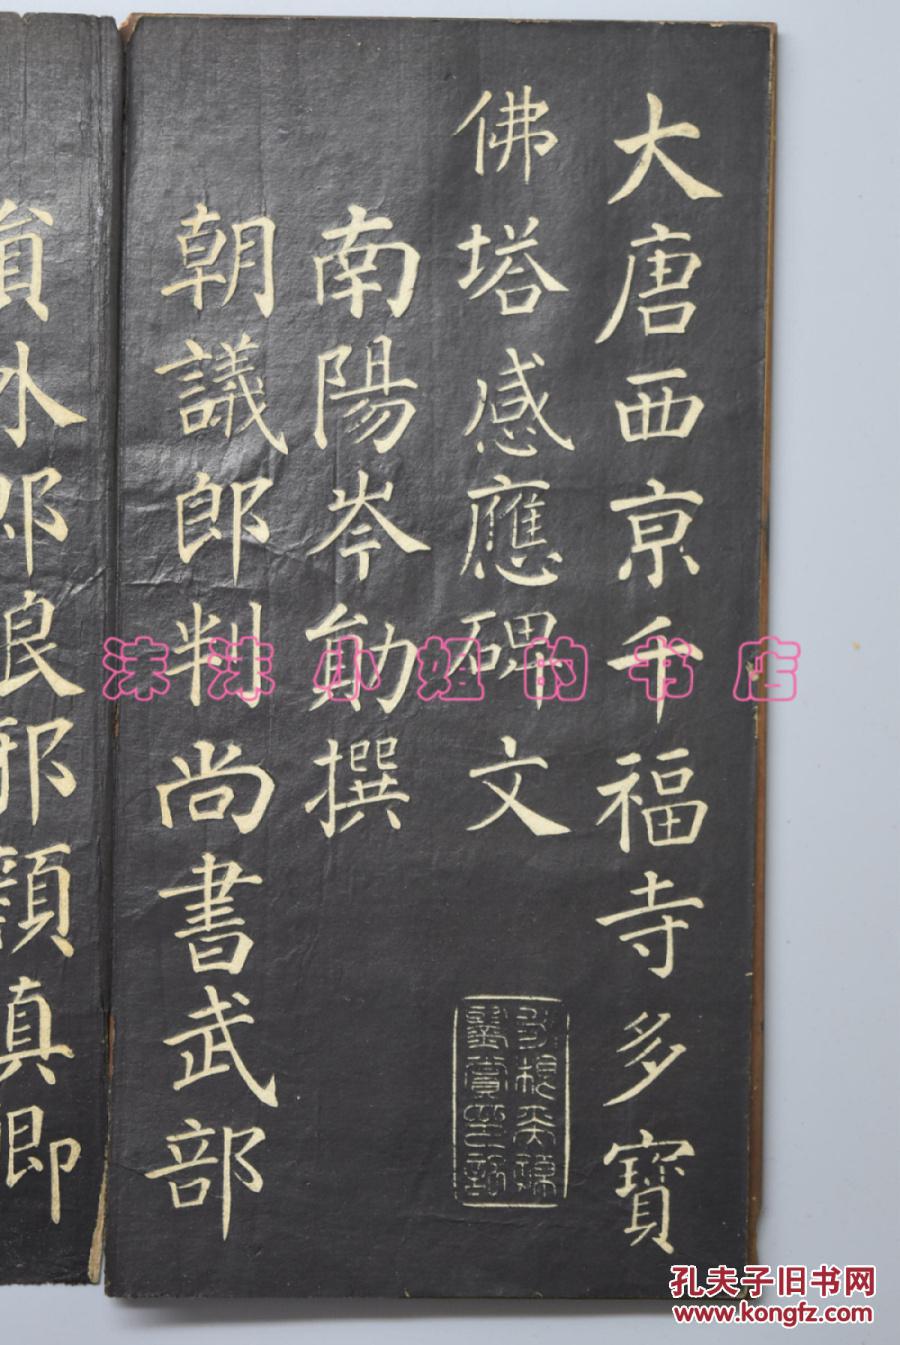 大唐西京千福寺多寶
佛塔感應碑文
南陽岑勛撰
朝議郎判尚書武部
員外郎琅邪顏真卿
沫沫小姐的书店
孔夫子旧书网
www.kongfz.com